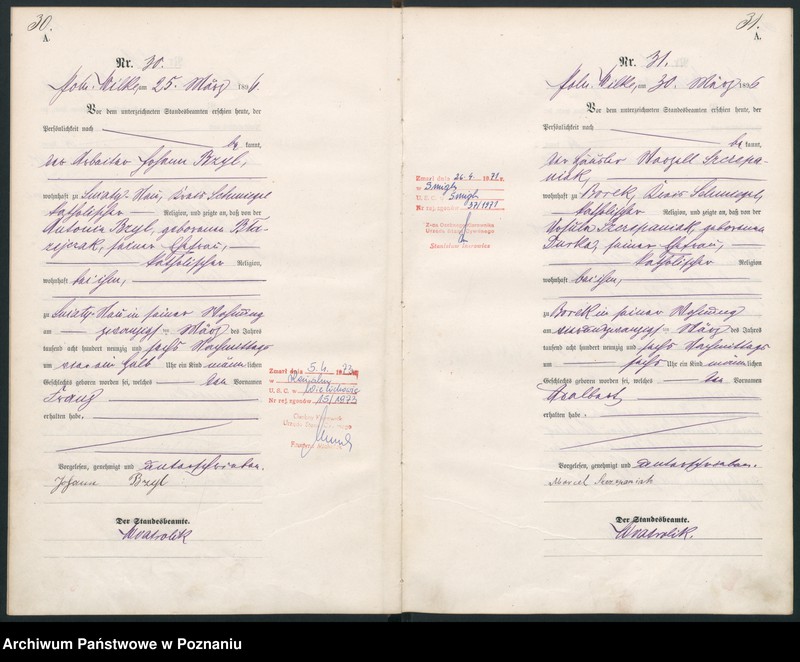 30.
A.
Nr. 30.
Poln. Wilke, am 25. März 1896.
Vor dem unterzeichneten Standesbeamten erschien heute, der
Persönlichkeit nach
be kannt,
der Arbeiter Johann Bzyl,
wohnhaft zu Kreis Schmiegel
katholischer Religion, und zeigte an, daß von der
Antonie Bzyl, geborenen
seiner Ehefrau,
katholischer Religion,
wohnhaft bei ihm,
zu in seiner Wohnung
am zwanzigsten März des Jahres
tausend acht hundert neunzig und sechs Nachmittags
um Uhr ein Kind männlichen
Geschlechts geboren worden sei, welches den Vornamen
Franz
erhalten habe.
Vorgelesen, genehmigt und unterschrieben.
Johann Bzyl
Der Standesbeamte.
Zmarł dnia 5.4. 1973
w
U. S. C. w Wielichowie
Nr rej. zgonów 15/1973
31.
A.
Nr. 31.
Poln. Wilke, am 30. März 1896
Vor dem unterzeichneten Standesbeamten erschien heute, der
Persönlichkeit nach
be kannt,
der Häusler Marzell Szczepa-
niak,
wohnhaft zu Borek, Kreis Schmiegel,
katholischer Religion, und zeigte an, daß von der
Ursula Szczepaniak, geborenen
Durka, seiner Ehefrau,
katholischer Religion
wohnhaft bei ihm,
zu Borek in seiner Wohnung
am März des Jahres
tausend acht hundert neunzig und sechs Nachmittags
um sechs Uhr ein Kind männlichen
Geschlechts geboren worden sei, welches den Vornamen
Adalbert
erhalten habe.
Vorgelesen, genehmigt und unterschrieben.
Marcel Szczepaniak
Der Standesbeamte.
Zmarł dnia 26.4 1971 r.
w Śmiglu
U. S. C. w Śmiglu
Nr rej. zgonów 37/1971
Archiwum Państwowe w Poznaniu